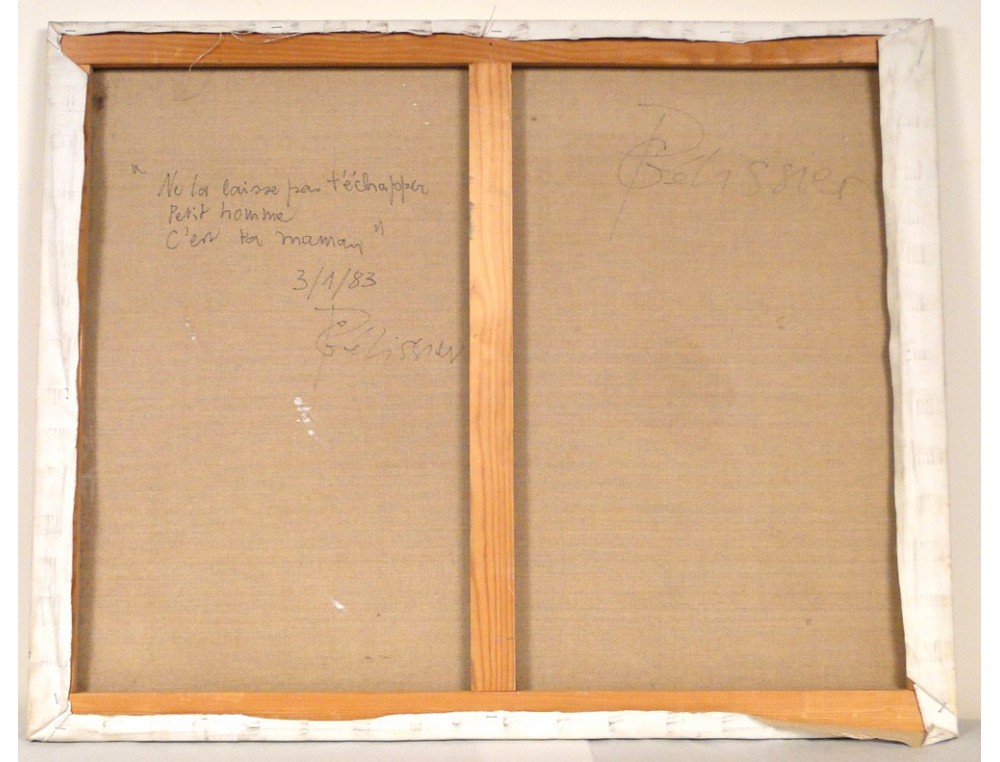 " Ne la laisse pas t'échapper
Petit homme
C'est ta maman "
3/1/83
Pélissier
Pélissier